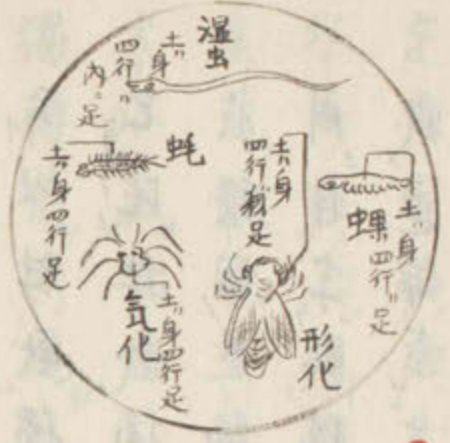 湿虫
土ハ身
四行ハ
内ニ足
蚝
土ハ身四行足
土ハ身
四行ハ足
螺
土ハ身
四行ハ足
気化
土ハ身四行足
形化